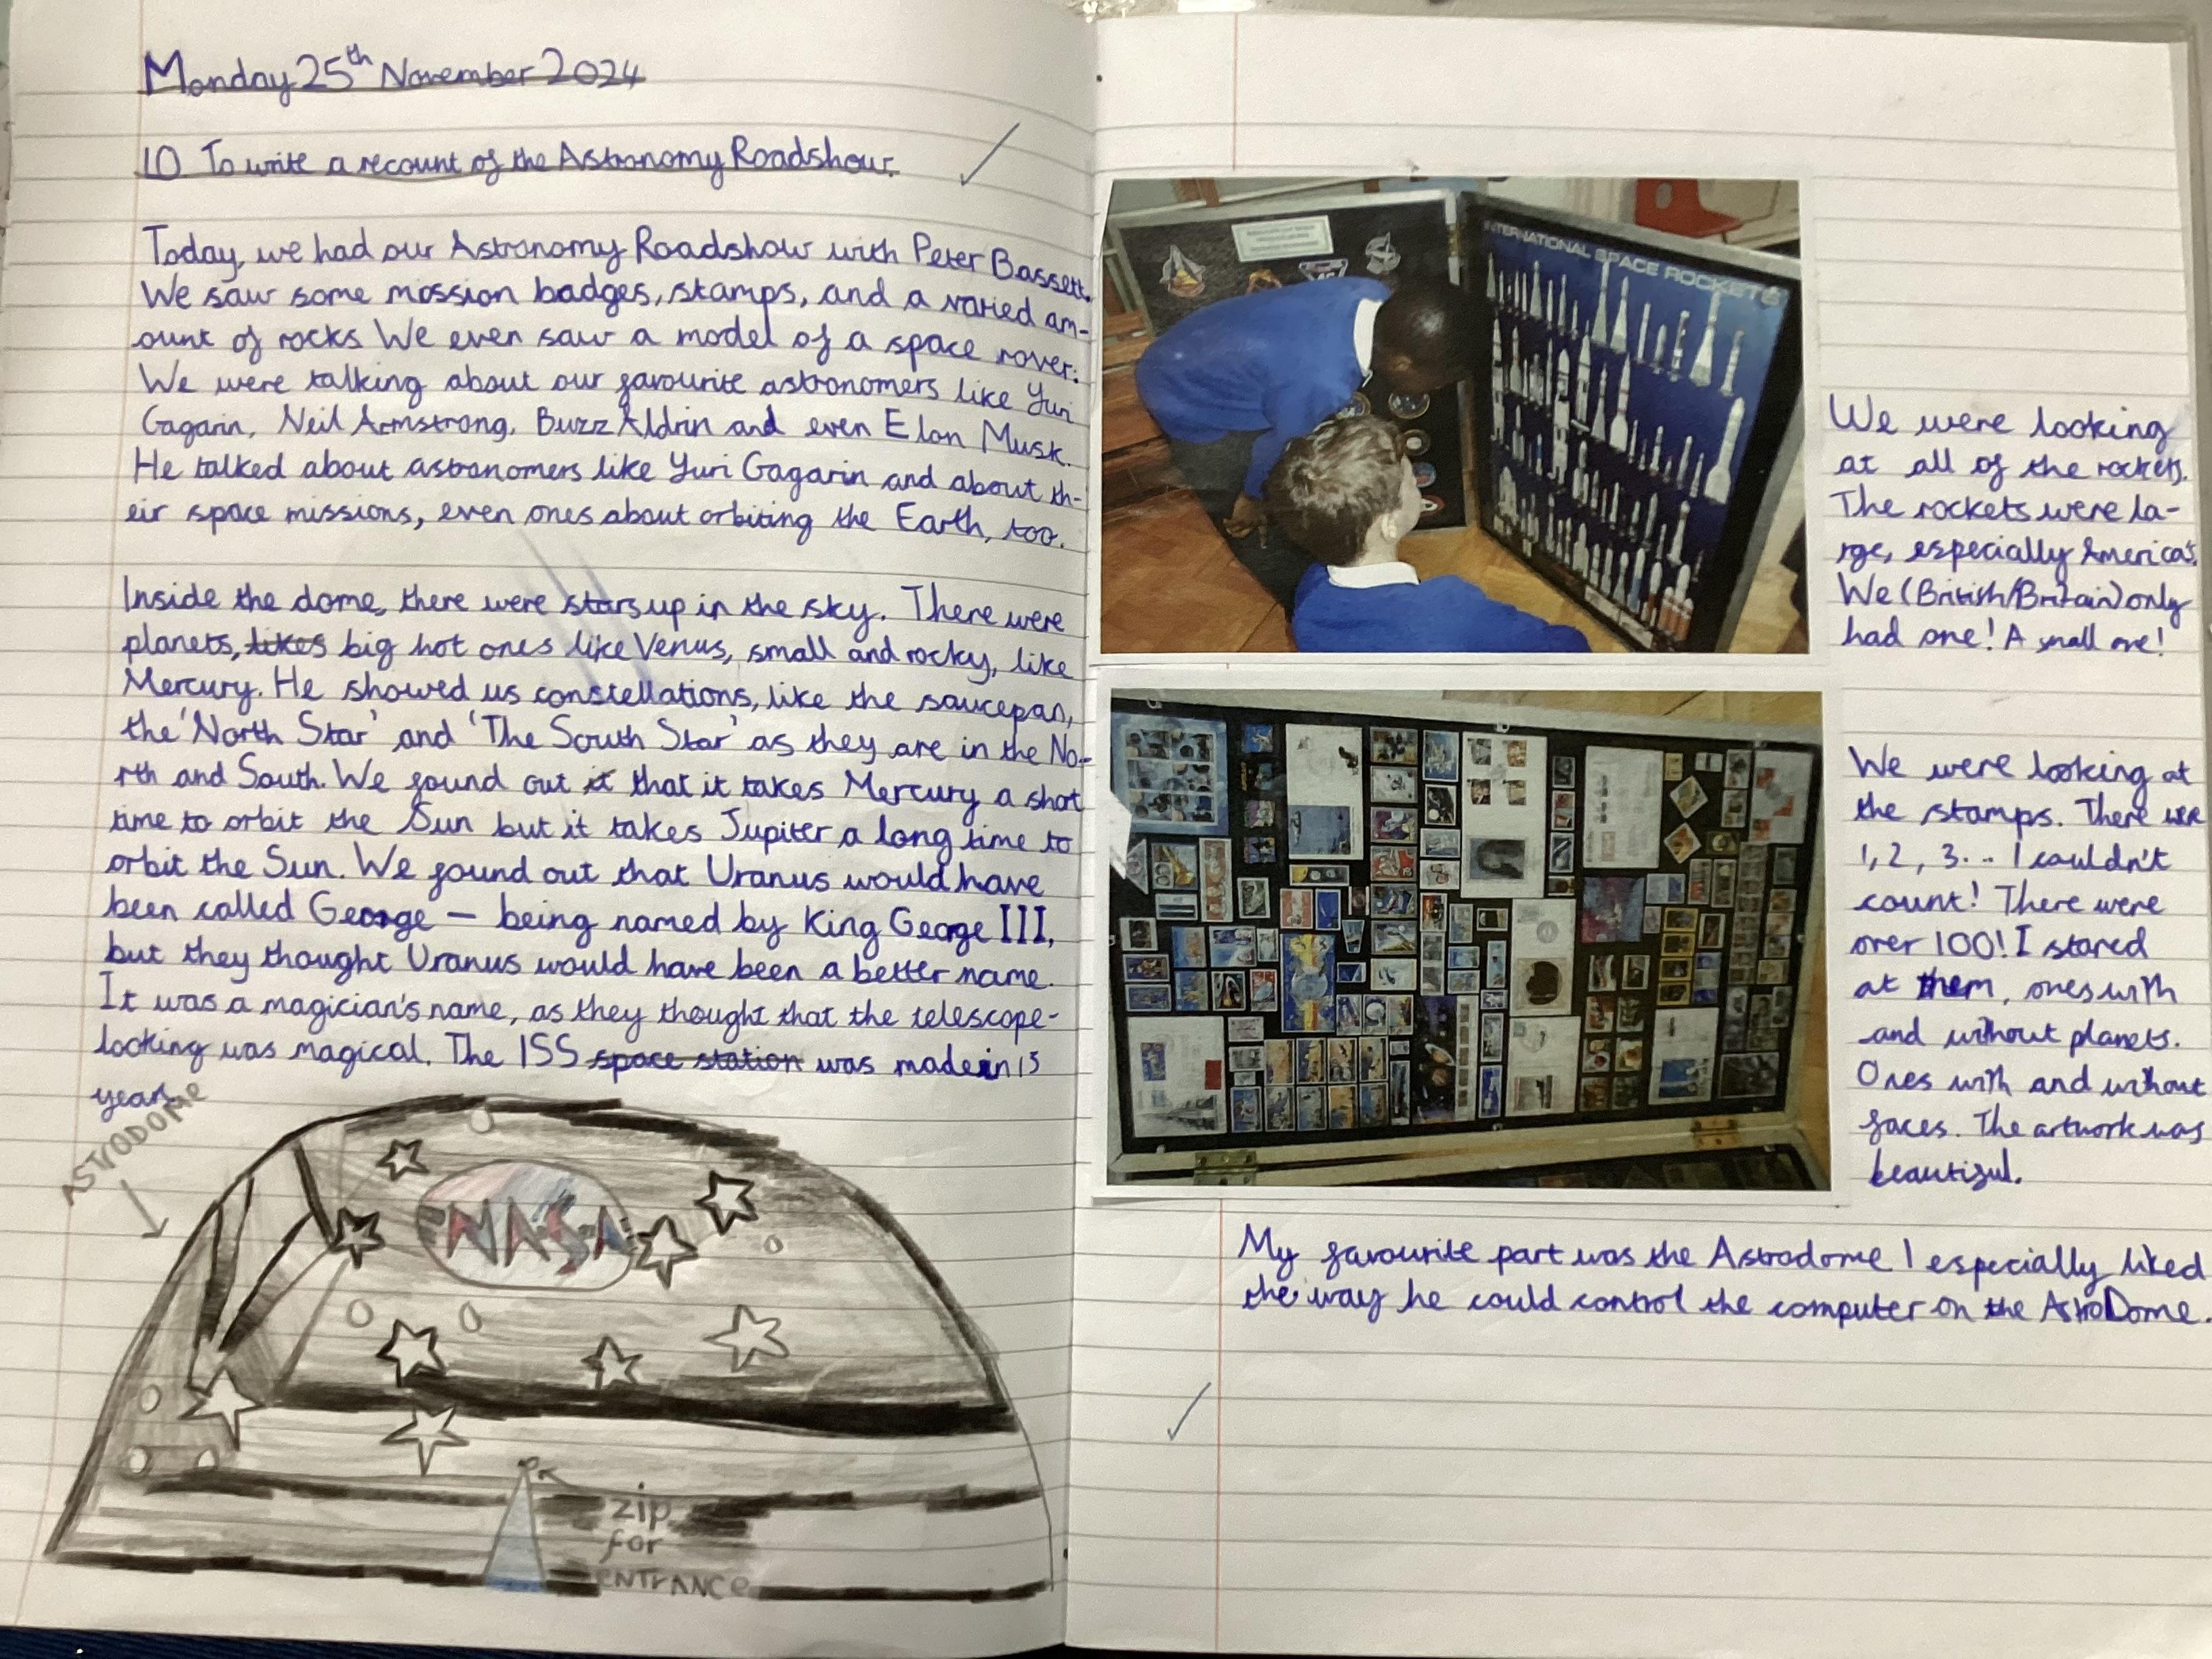 Monday 25th November 2024
LO To write a recount of the Astronomy Roadshow.
Today, we had our Astronomy Roadshow with Peter Bassett.
We saw some mission badges, stamps, and a varied am-
ount of rocks We even saw a model of a space rover.
We were talking about our favourite astronomers like Yuri
Gagarin, Neil Armstrong, Buzz Aldrin and even Elon Musk.
He talked about astronomers like Yuri Gagarin and about th-
eir space missions, even ones about orbiting the Earth, too.
Inside the dome, there were stars up in the sky. There were
planets, likes big hot ones like Venus, small and rocky, like
Mercury. He showed us constellations, like the saucepan,
the 'North Star' and 'The South Star' as they are in the No-
rth and South. We found out it that it takes Mercury a short
time to orbit the Sun but it takes Jupiter a long time to
orbit the Sun. We found out that Uranus would have
been called George — being named by King George III,
but they thought Uranus would have been a better name.
It was a magician's name, as they thought that the telescope-
looking was magical. The ISS space station was made in 13
years
ASTRODOME
NASA
zip
for
ENTRANCE
INTERNATIONAL SPACE ROCKETS
We were looking
at all of the rockets.
The rockets were la-
rge, especially America's.
We (British/Britain) only
had one! A small one!
We were looking at
the stamps. There were
1, 2, 3... I couldn't
count! There were
over 100! I stared
at them, ones with
and without planets.
Ones with and without
faces. The artwork was
beautiful.
My favourite part was the Astrodome I especially liked
the way he could control the computer on the AstroDome.